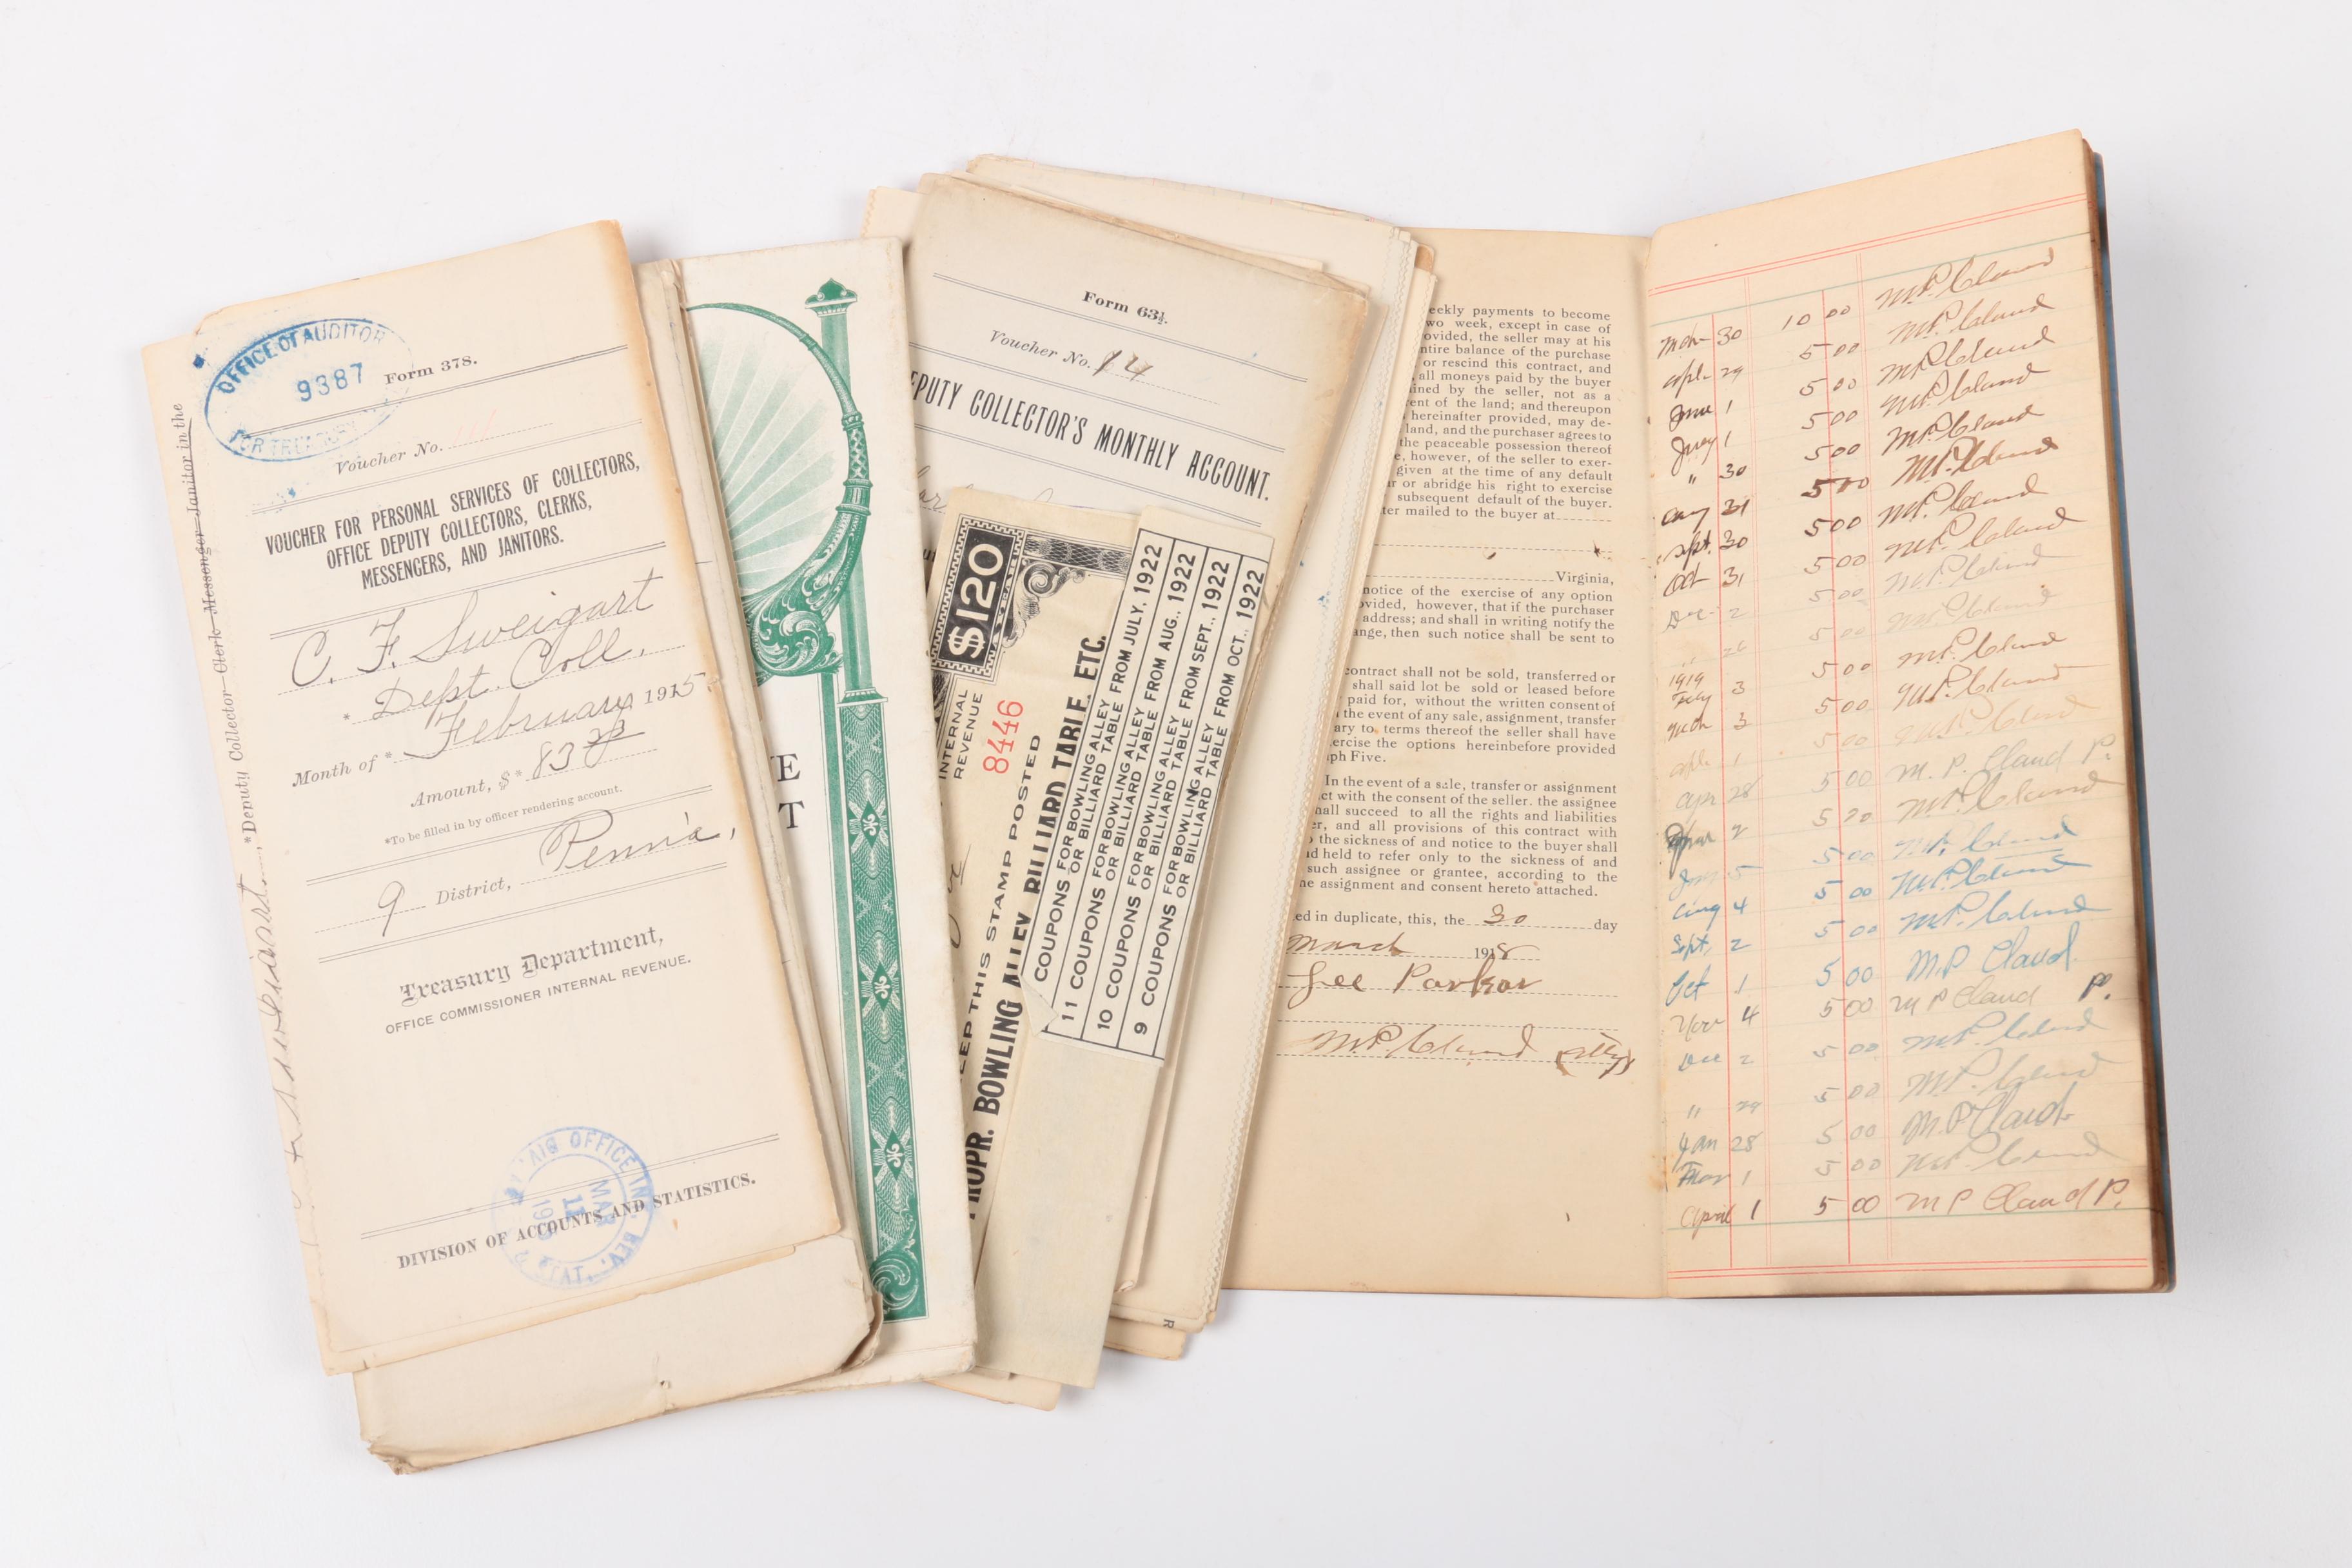 OFFICE OF AUDITOR
9387
FOR TREASURY
Form 378.
Voucher No.
VOUCHER FOR PERSONAL SERVICES OF COLLECTORS,
OFFICE DEPUTY COLLECTORS, CLERKS,
MESSENGERS, AND JANITORS.
C. F. Sweigart
* Dept. Coll.
Month of * February 1915
Amount, $* 83 33
*To be filled in by officer rendering account.
9 District, Penn'a,
Treasury Department,
OFFICE COMMISSIONER INTERNAL REVENUE.
MAR
11
DIVISION OF ACCOUNTS AND STATISTICS.
*Deputy Collector—Clerk—Messenger—Janitor in the
E
T
Form 63½.
Voucher No. 14
EPUTY COLLECTOR'S MONTHLY ACCOUNT.
$120
INTERNAL
REVENUE
8446
EEP THIS STAMP POSTED
PROPR. BOWLING ALLEY, BILLIARD TABLE, ETC.
COUPONS FOR BOWLING ALLEY FROM JULY, 1922
OR BILLIARD TABLE
11 COUPONS FOR BOWLING ALLEY FROM AUG., 1922
OR BILLIARD TABLE
10 COUPONS FOR BOWLING ALLEY FROM SEPT., 1922
OR BILLIARD TABLE
9 COUPONS FOR BOWLING ALLEY FROM OCT., 1922
OR BILLIARD TABLE
eekly payments to become
wo week, except in case of
ovided, the seller may at his
ntire balance of the purchase
or rescind this contract, and
all moneys paid by the buyer
ined by the seller, not as a
ent of the land; and thereupon
hereinafter provided, may de-
land, and the purchaser agrees to
the peaceable possession thereof
e, however, of the seller to exer-
given at the time of any default
ar or abridge his right to exercise
subsequent default of the buyer.
ter mailed to the buyer at
Virginia,
notice of the exercise of any option
ovided, however, that if the purchaser
address; and shall in writing notify the
ange, then such notice shall be sent to
contract shall not be sold, transferred or
shall said lot be sold or leased before
paid for, without the written consent of
the event of any sale, assignment, transfer
ary to terms thereof the seller shall have
ercise the options hereinbefore provided
ph Five.
In the event of a sale, transfer or assignment
ct with the consent of the seller. the assignee
hall succeed to all the rights and liabilities
er, and all provisions of this contract with
the sickness of and notice to the buyer shall
d held to refer only to the sickness of and
such assignee or grantee, according to the
ne assignment and consent hereto attached.
ed in duplicate, this, the 30 day
March 1918
Lee Parker
M.P. Claud (Atty)
Mch 30 10 00 M.P. Claud
Apl 29 5 00 M.P. Claud
June 1 5 00 M.P. Claud
July 1 5 00 M.P. Claud
" 30 5 00 M.P. Claud
Aug 31 5 00 M.P. Claud
Sept. 30 5 00 M.P. Claud
Oct 31 5 00 M.P. Claud
Dec 2 5 00 M.P. Claud
" 26 5 00 M.P. Claud
1919
Feby 3 5 00 M.P. Claud
Mch 3 5 00 M.P. Claud
Apl. 1 5 00 M.P. Claud
Apr 28 5 00 M. P. Claud P.
2 5 20 M.P. Claud
5 5 00 M.P. Claud
Aug 4 5 00 M.P. Claud
Sept. 2 5 00 M.P. Claud
Oct 1 5 00 M.P Claud
Nov 4 5 00 M P Claud P.
Dec 2 5 00 M.P. Claud
" 29 5 00 M.P. Claud
Jan 28 5 00 M.P Claud
Mar 1 5 00 M.P. Claud
April 1 5 00 M P Claud P.